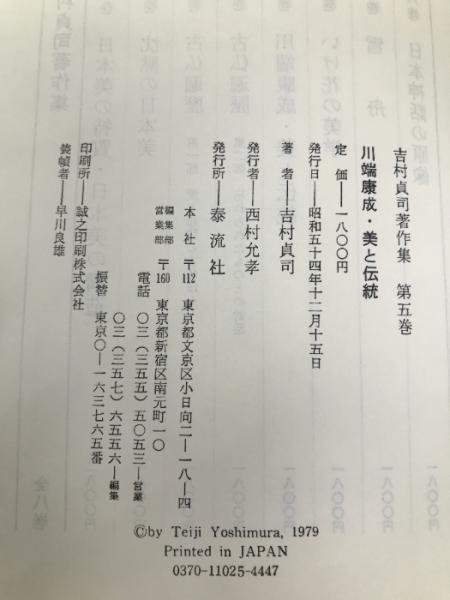 吉村貞司著作集　第五巻
川端康成・美と伝統
定　価――一八〇〇円
発行日――昭和五十四年十二月十五日
著　者――吉村貞司
発行者――西村允孝
発行所――泰流社
本　社　〒112　東京都文京区小日向二―一八―四
編集部
営業部　〒160　東京都新宿区南元町一〇
電話　〇三（三五五）五〇五三―営業
〇三（三五七）六五五六―編集
振替　東京〇―一六三七六五番
印刷所――誠之印刷株式会社
装幀者――早川良雄
©by Teiji Yoshimura, 1979
Printed in JAPAN
0370-11025-4447